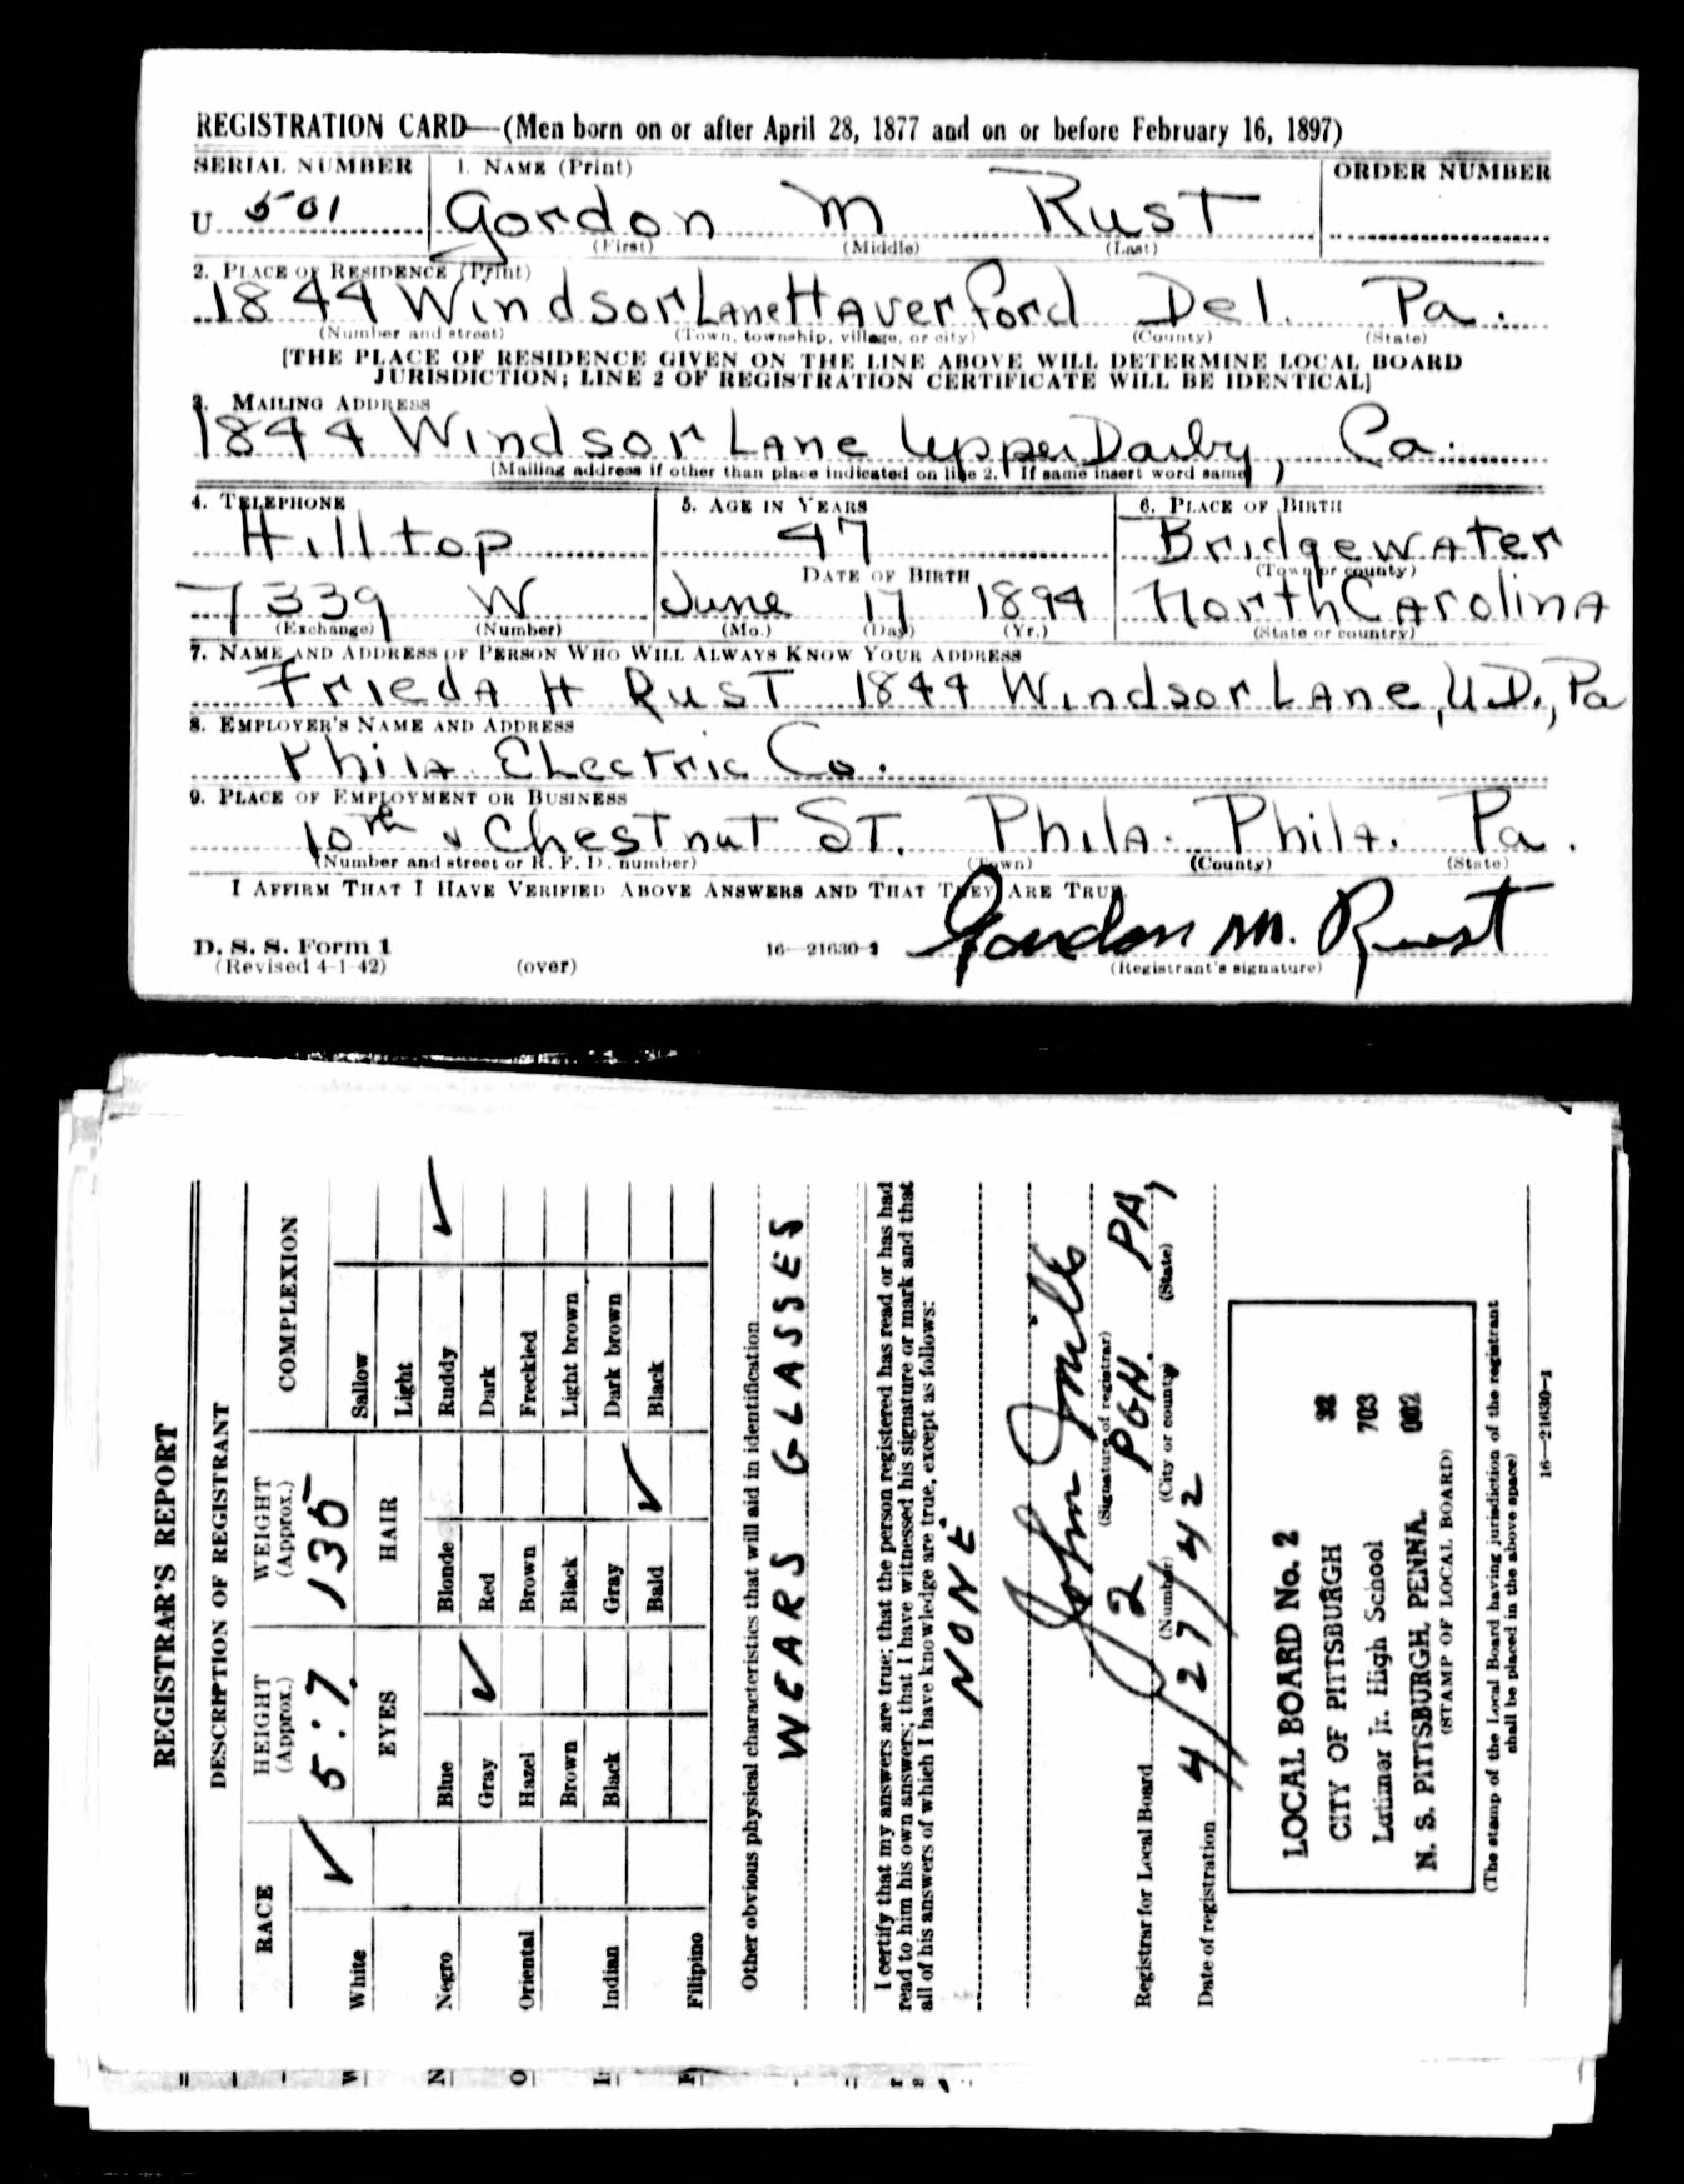 REGISTRATION CARD—(Men born on or after April 28, 1877 and on or before February 16, 1897)
SERIAL NUMBER 1. NAME (Print) ORDER NUMBER
U 501 Gordon M Rust
(First) (Middle) (Last)
2. PLACE OF RESIDENCE (Print)
1844 Windsor Lane Haverford Del. Pa.
(Number and street) (Town, township, village, or city) (County) (State)
[THE PLACE OF RESIDENCE GIVEN ON THE LINE ABOVE WILL DETERMINE LOCAL BOARD
JURISDICTION; LINE 2 OF REGISTRATION CERTIFICATE WILL BE IDENTICAL]
3. MAILING ADDRESS
1844 Windsor Lane Upper Darby, Pa.
[Mailing address if other than place indicated on line 2. If same insert word same]
4. TELEPHONE 5. AGE IN YEARS 6. PLACE OF BIRTH
Hilltop 47 Bridgewater
DATE OF BIRTH (Town or county)
7339 W June 17 1894 North Carolina
(Exchange) (Number) (Mo.) (Day) (Yr.) (State or country)
7. NAME AND ADDRESS OF PERSON WHO WILL ALWAYS KNOW YOUR ADDRESS
Frieda H Rust 1844 Windsor Lane, U.D., Pa
8. EMPLOYER'S NAME AND ADDRESS
Phila. Electric Co.
9. PLACE OF EMPLOYMENT OR BUSINESS
10th & Chestnut ST. Phila. Phila. Pa.
(Number and street or R. F. D. number) (Town) (County) (State)
I AFFIRM THAT I HAVE VERIFIED ABOVE ANSWERS AND THAT THEY ARE TRUE.
D. S. S. Form 1 16—21630-1 Gordon M. Rust
(Revised 4-1-42) (over) (Registrant's signature)
REGISTRAR'S REPORT
DESCRIPTION OF REGISTRANT
RACE HEIGHT (Approx.) WEIGHT (Approx.) COMPLEXION
5:7 135
White ✓ EYES HAIR Sallow
Light
Negro Blue Blonde Ruddy ✓
Gray ✓ Red Dark
Oriental Hazel Brown Freckled
Brown Black Light brown
Indian Black Gray Dark brown
Bald ✓ Black
Filipino
Other obvious physical characteristics that will aid in identification
WEARS GLASSES
I certify that my answers are true; that the person registered has read or has had
read to him his own answers; that I have witnessed his signature or mark and that
all of his answers of which I have knowledge are true, except as follows:
NONE
John Mills
(Signature of registrar)
Registrar for Local Board 2 PGH. PA,
(Number) (City or county) (State)
Date of registration 4/27/42
LOCAL BOARD No. 2
CITY OF PITTSBURGH 32
Latimer Jr. High School 703
N. S. PITTSBURGH, PENNA. 002
(STAMP OF LOCAL BOARD)
(The stamp of the Local Board having jurisdiction of the registrant
shall be placed in the above space)
16—21630-1